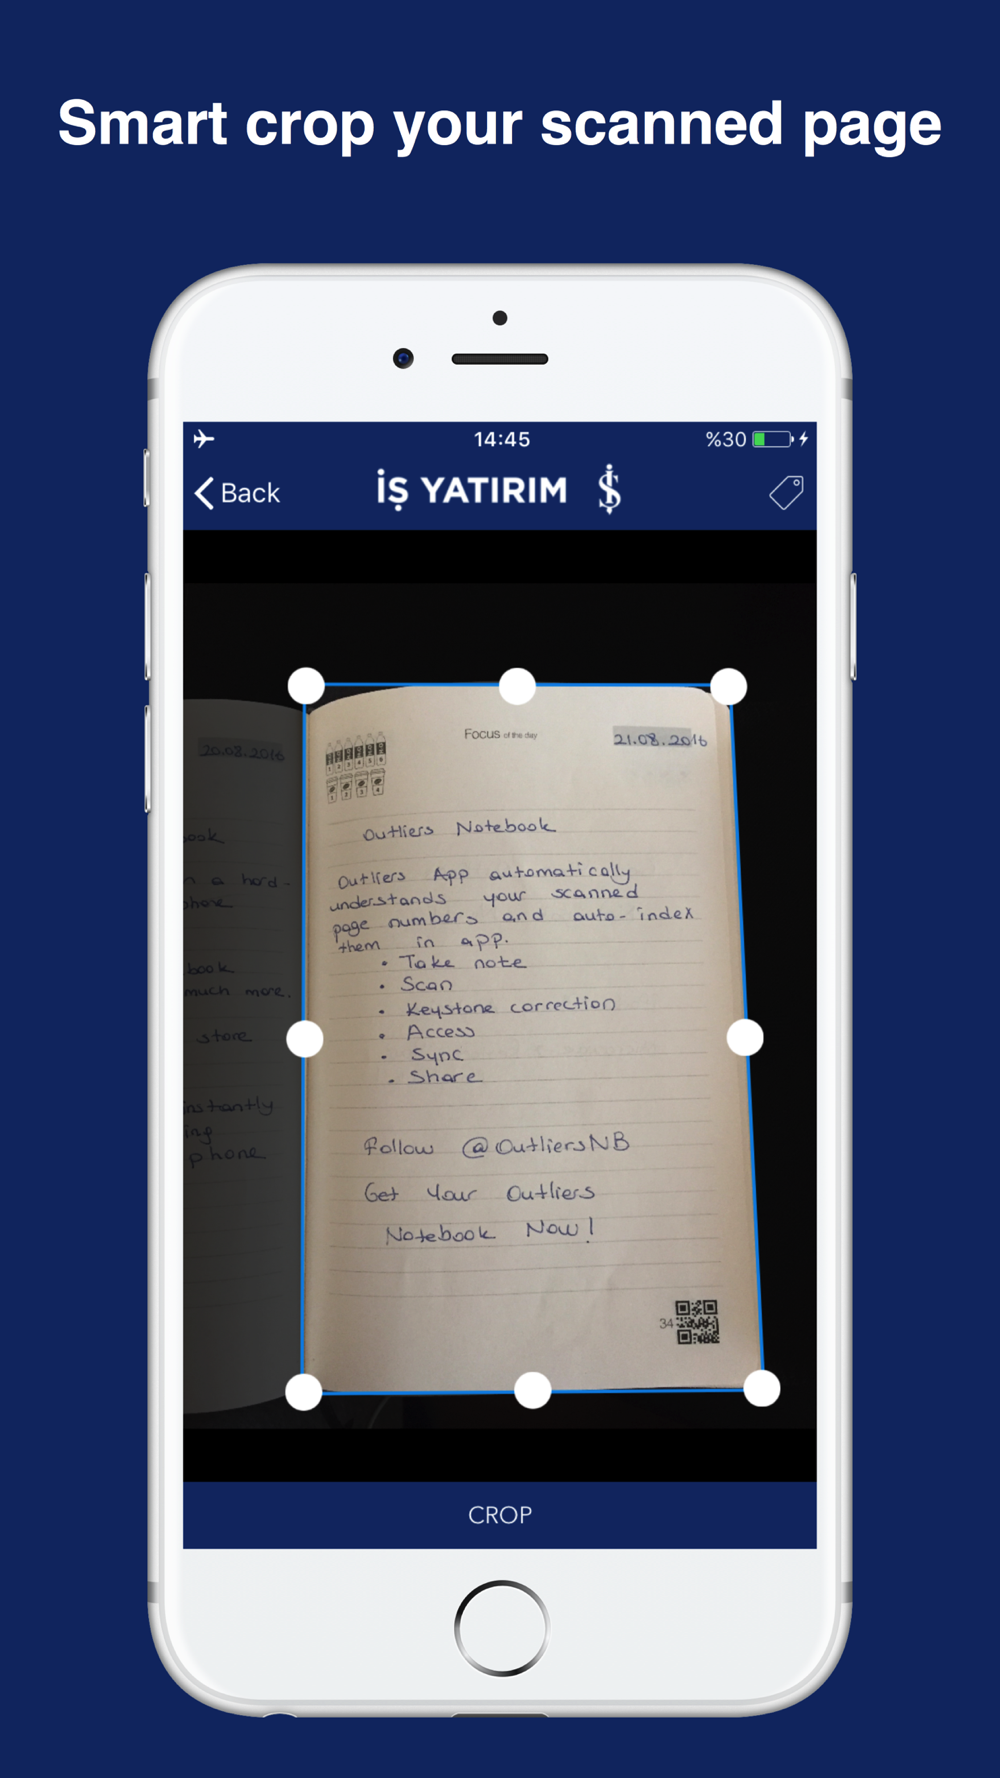 Smart crop your scanned page
14:45
%30
Back
İŞ YATIRIM
Focus of the day
21.08.2016
20.08.2016
Outliers Notebook
Outliers App automatically
understands your scanned
page numbers and auto-index
them in app.
• Take note
• Scan
• Keystone correction
• Access
• Sync
• Share
Follow @OutliersNB
Get Your Outliers
Notebook Now!
34
ook
a hard-
phone
book
much more.
store
instantly
ing
phone
CROP